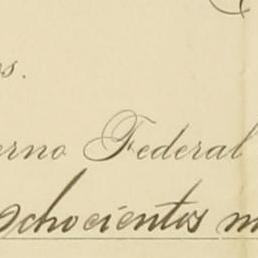 os.
erno Federal
ochocientos m